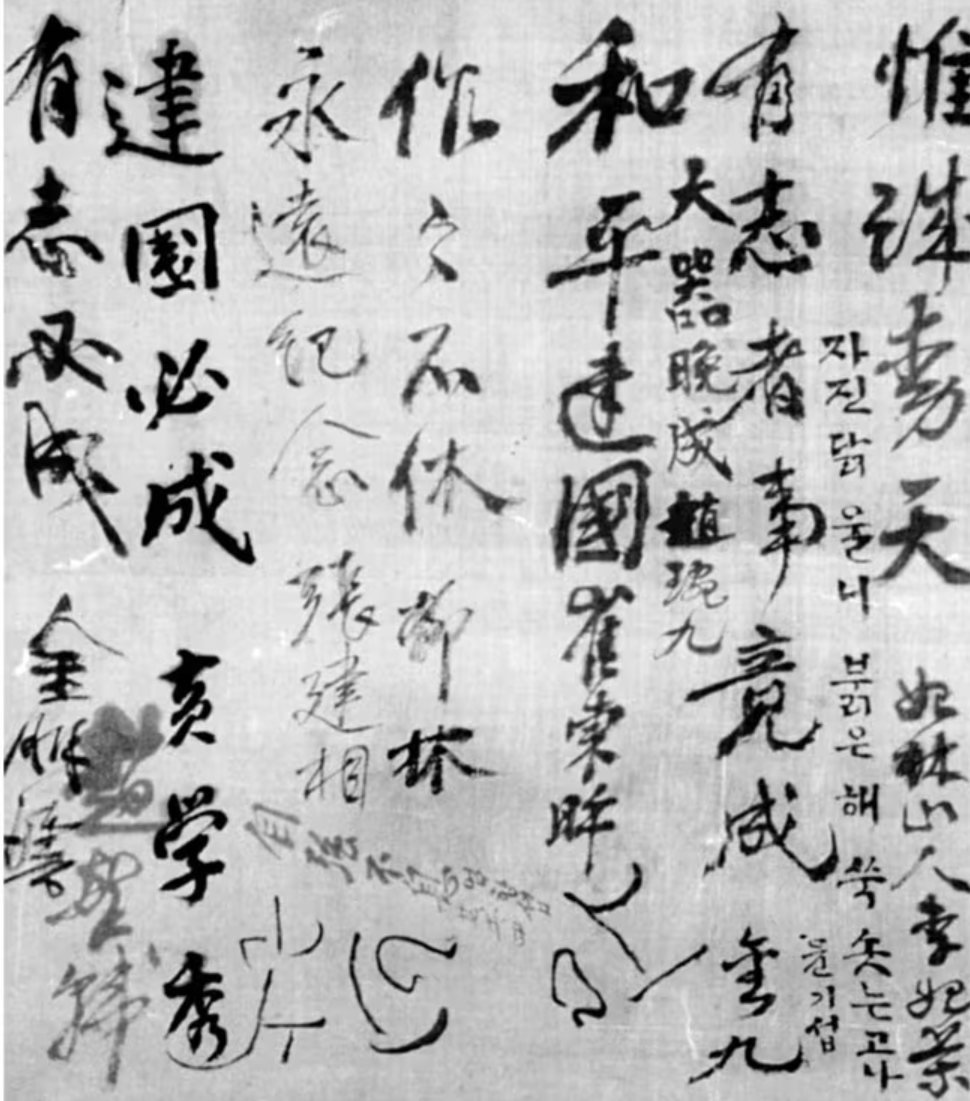 惟誠動天 始林山人 李始榮
자진닭 울니 붉은 해 쑥 솟는고나
윤기섭
有志者事竟成 金九
大器晩成 趙琬九
和平建國 崔東旿
作之不休 柳林
永遠紀念 張建相
自强不息
建國必成 黃学秀
有志必成 金朋濬
趙擎韓